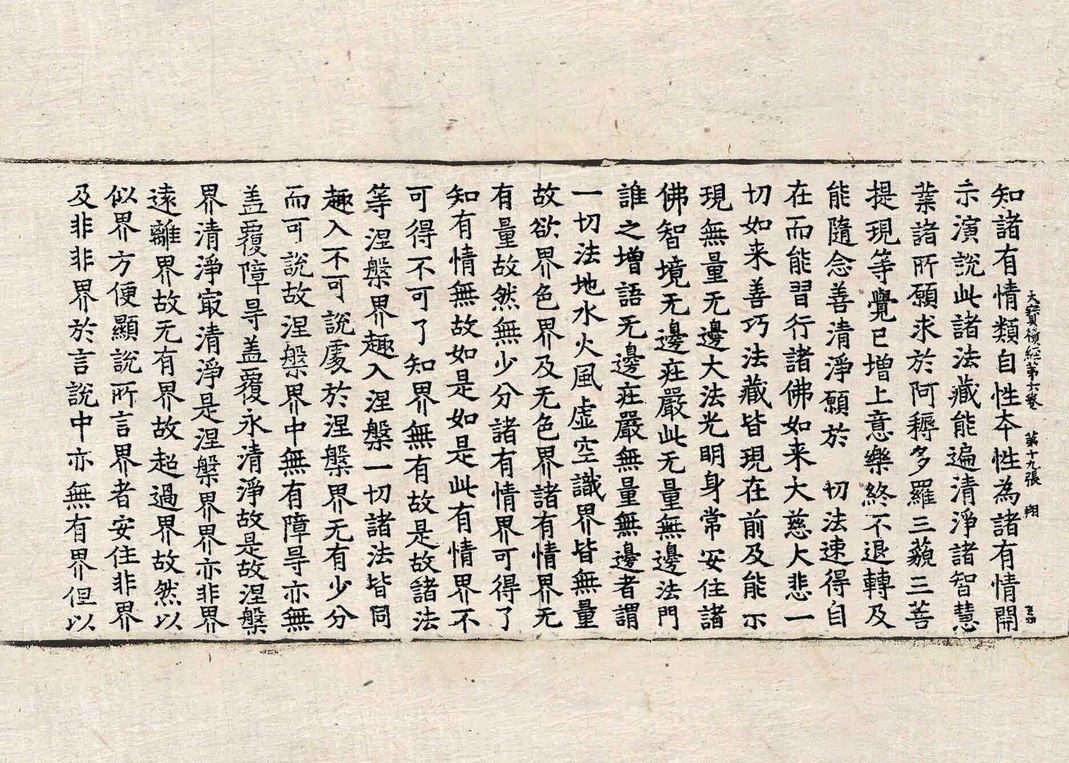 大寶積經第六卷 第十九張 翔
知諸有情類自性本性為諸有情開
示演說此諸法藏能遍清淨諸智慧
業諸所願求於阿耨多羅三藐三菩
提現等覺已增上意樂終不退轉及
能隨念善清淨願於 切法速得自
在而能習行諸佛如来大慈大悲一
切如来善巧法藏皆現在前及能示
現無量无邊大法光明身常安住諸
佛智境无邊庄嚴此无量無邊法門
誰之增語无邊庄嚴無量無邊者謂
一切法地水火風虛空識界皆無量
故欲界色界及无色界諸有情界无
有量故然無少分諸有情界可得了
知有情無故如是如是此有情界不
可得不可了知界無有故是故諸法
等涅槃界趣入涅槃一切諸法皆同
趣入不可說處於涅槃界无有少分
而可說故涅槃界中無有障㝵亦無
盖覆障㝵盖覆永清淨故是故涅槃
界清淨㝡清淨是涅槃界界亦非界
遠離界故无有界故超過界故然以
似界方便顯說所言界者安住非界
及非非界於言說中亦無有界但以